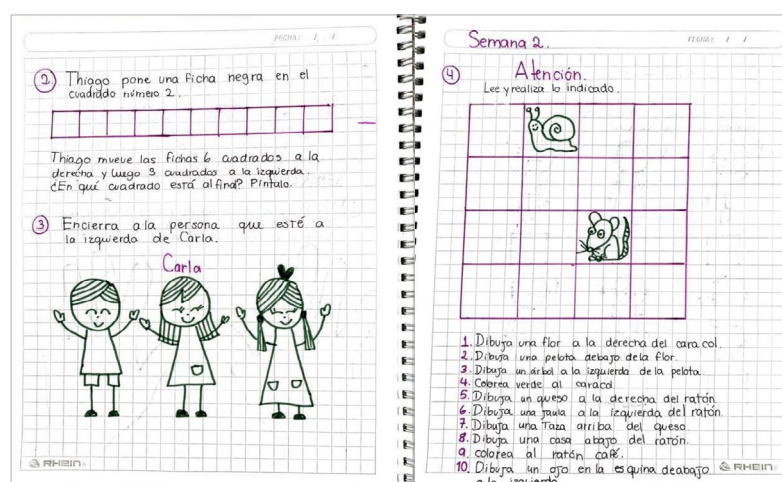 FECHA: / /
2. Thiago pone una ficha negra en el
cuadrado número 2.
Thiago mueve las fichas 6 cuadrados a la
derecha y luego 3 cuadrados a la izquierda.
¿En qué cuadrado está al final? Píntalo.
3 Encierra a la persona que esté a
la izquierda de Carla.
Carla
RHEIN
Semana 2.
FECHA: / /
4 Atención.
Lee y realiza lo indicado.
1. Dibuja una flor a la derecha del caracol.
2. Dibuja una pelota debajo de la flor.
3. Dibuja un árbol a la izquierda de la pelota.
4. Colorea verde al caracol
5. Dibuja un queso a la derecha del ratón
6. Dibuja una jaula a la izquierda del ratón.
7. Dibuja una Taza arriba del queso.
8. Dibuja una casa abajo del ratón.
9. colorea al ratón café.
10. Dibuja un ojo en la esquina deabajo
a la izquierda
RHEIN